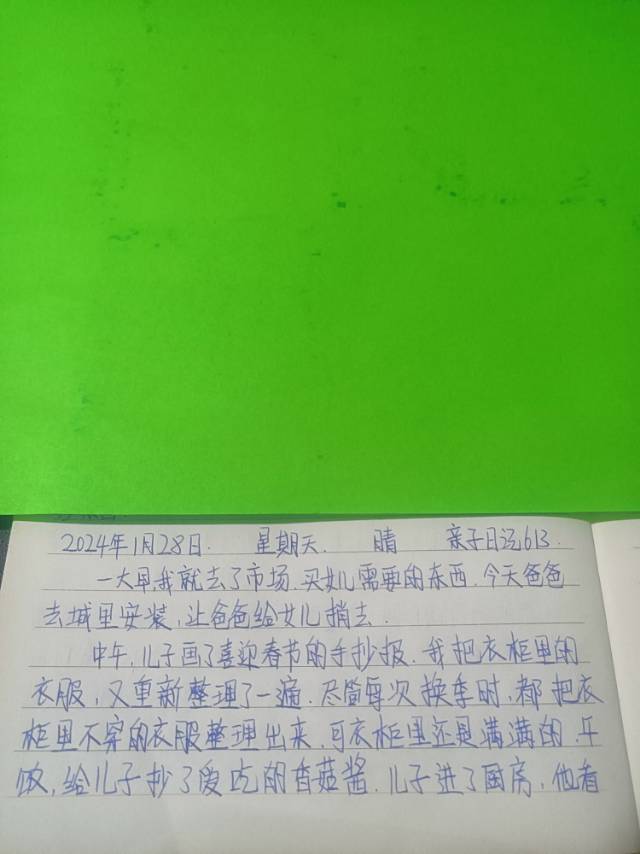 2024年1月28日. 星期天. 晴 亲子日记613.
一大早,我就去了市场.买女儿需要的东西.今天爸爸
去城里安装,让爸爸给女儿捎去.
中午,儿子画了喜迎春节的手抄报.我把衣柜里的
衣服,又重新整理了一遍.尽管每次换季时,都把衣
柜里不穿的衣服整理出来,可衣柜里还是满满的.午
饭,给儿子抄了爱吃的香菇酱.儿子进了厨房,他看